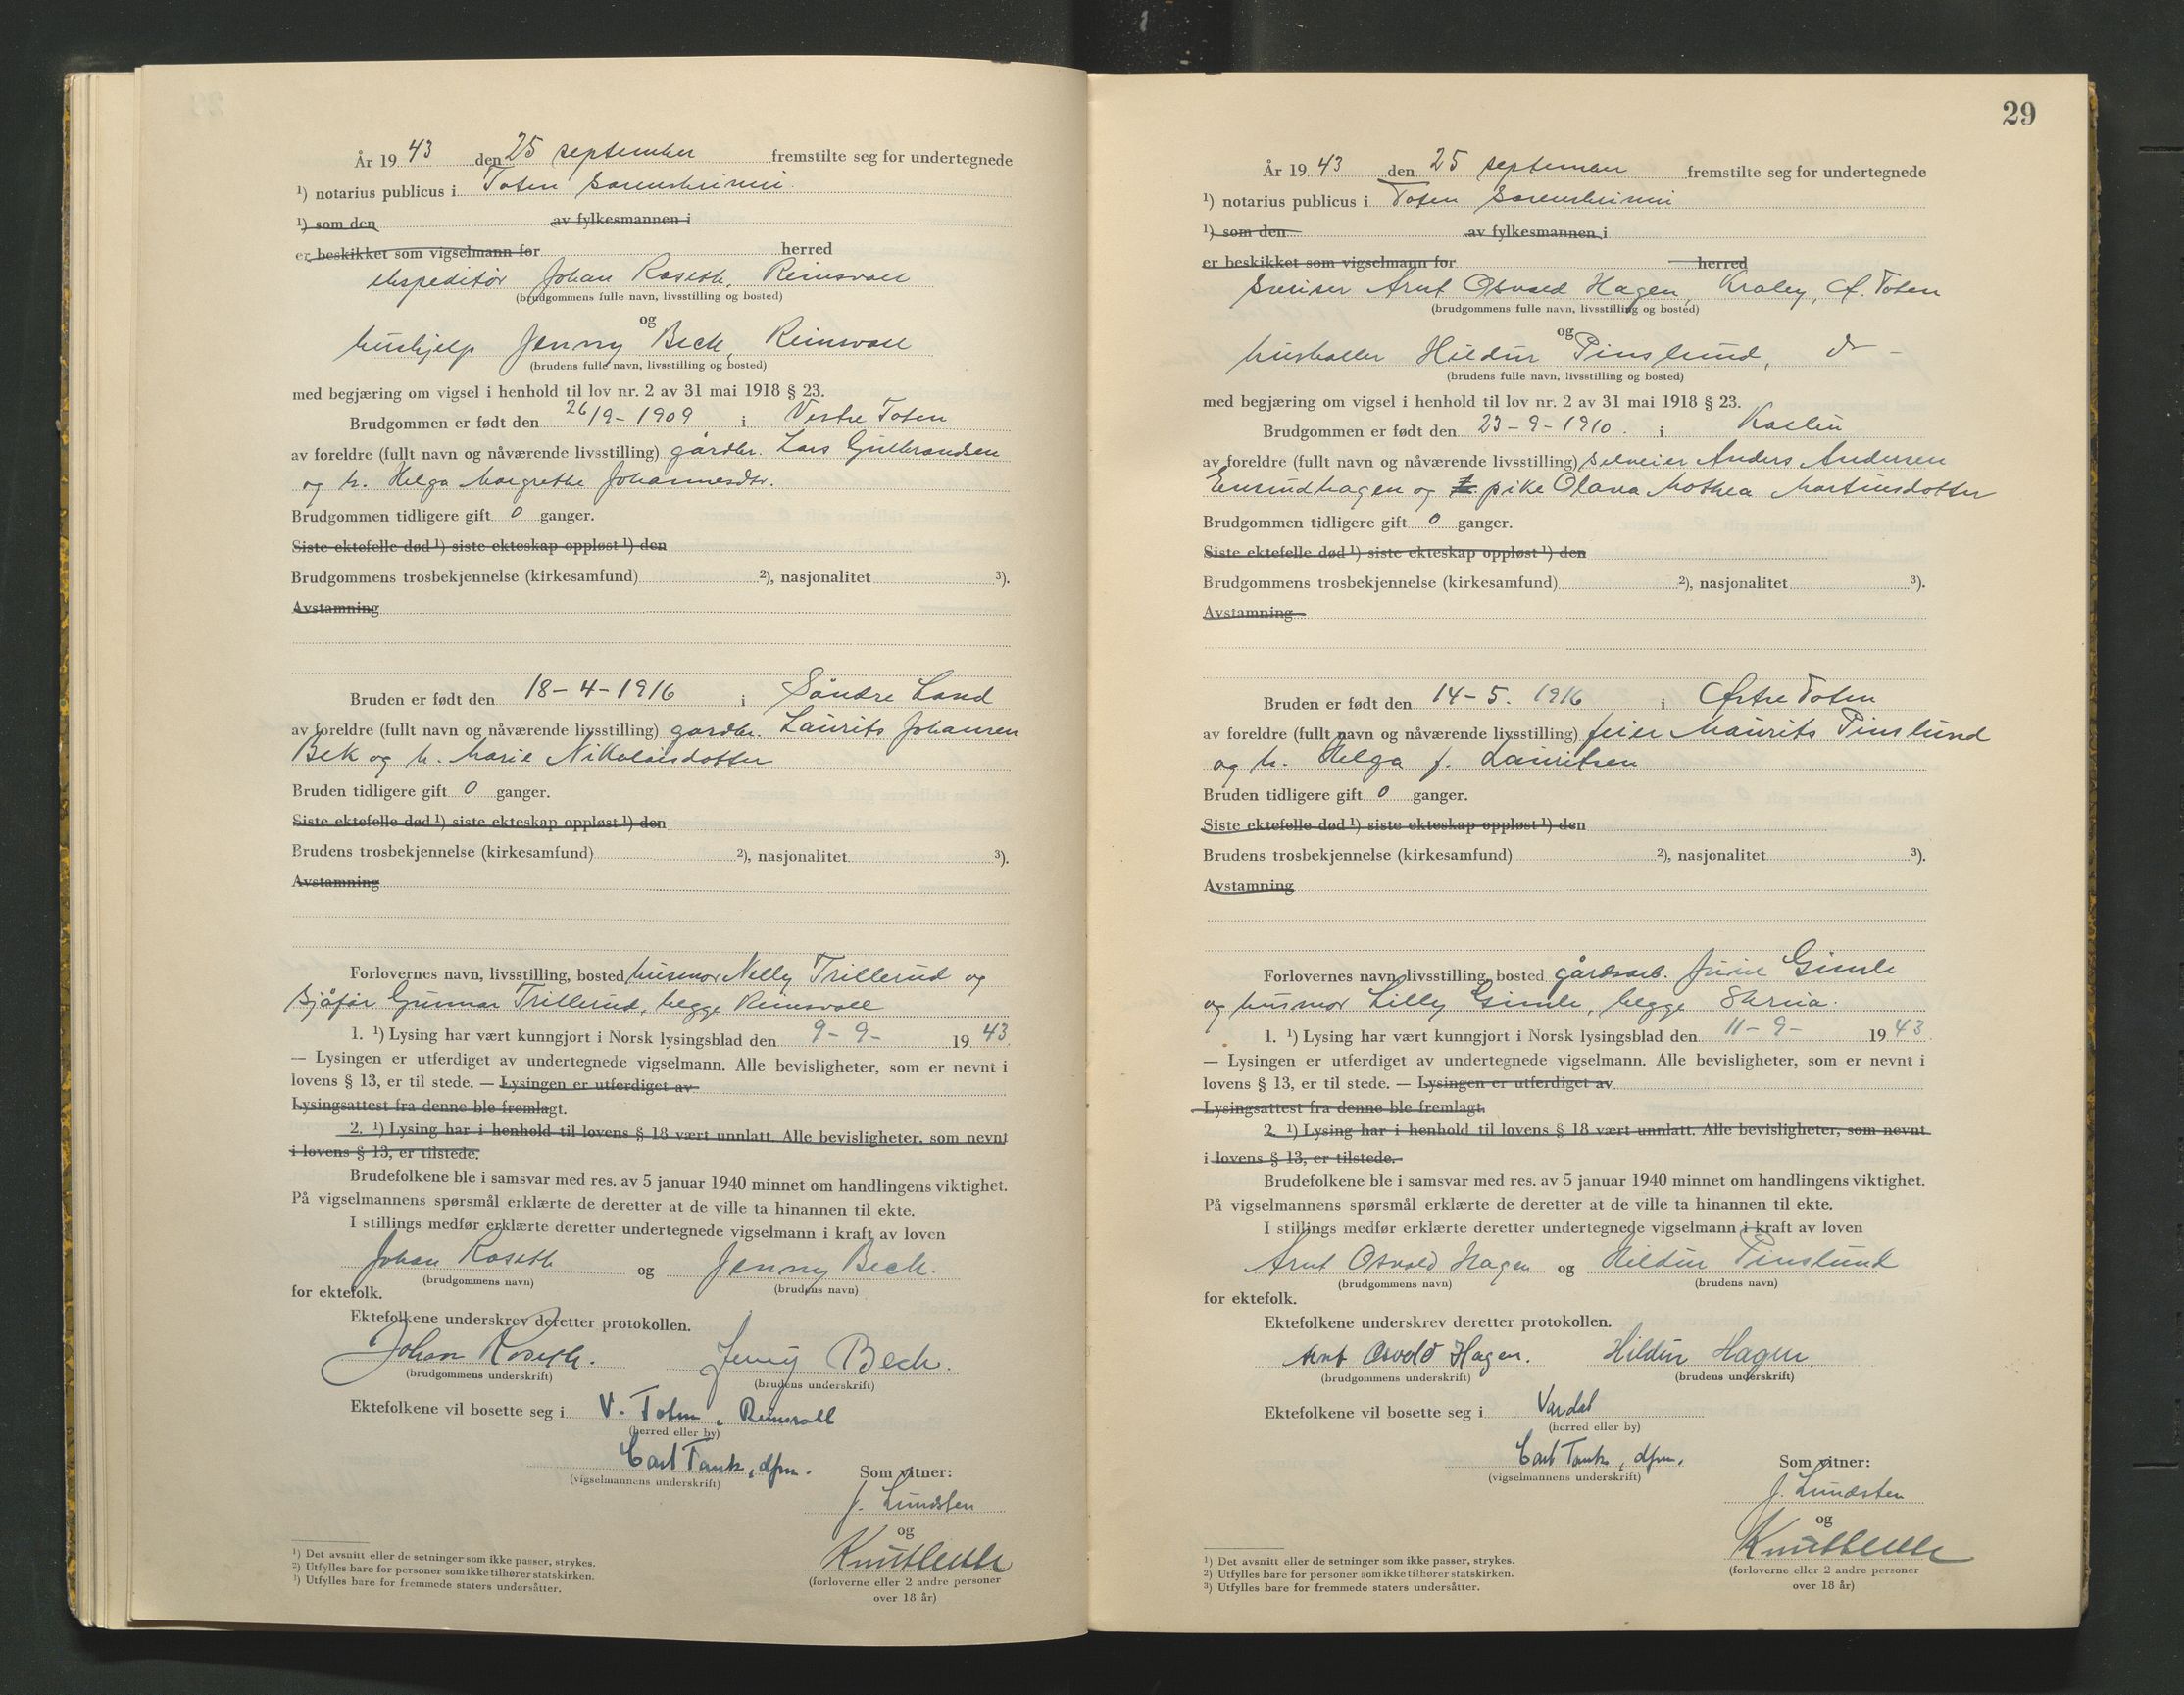 År 1943 den 25 september fremstilte seg for undertegnede
¹) notarius publicus i Toten sorenskriveri
¹) som den av fylkesmannen i
er beskikket som vigselmann for herred
ekspeditør Johan Roseth, Reinsvoll
(brudgommens fulle navn, livsstilling og bosted)
og
hushjelp Jenny Beck, Reinsvoll
(brudens fulle navn, livsstilling og bosted)
med begjæring om vigsel i henhold til lov nr. 2 av 31 mai 1918 § 23.
Brudgommen er født den 26/9-1909 i Vestre Toten
av foreldre (fullt navn og nåværende livsstilling) gårdbr. Lars Gulbrandsen
og h. Helga Margrethe Johannesdtr.
Brudgommen tidligere gift 0 ganger.
Siste ektefelle død ¹) siste ekteskap oppløst ¹) den
Brudgommens trosbekjennelse (kirkesamfund) ²), nasjonalitet ³).
Avstamning
Bruden er født den 18-4-1916 i Söndre Land
av foreldre (fullt navn og nåværende livsstilling) gardbr. Laurits Johansen
Bek og h. Marie Nikolaisdotter
Bruden tidligere gift 0 ganger.
Siste ektefelle død ¹) siste ekteskap oppløst ¹) den
Brudens trosbekjennelse (kirkesamfund) ²), nasjonalitet ³).
Avstamning
Forlovernes navn, livsstilling, bosted husmor Nelly Trillerud og
sjåfør Gunnar Trillerud, begge Reinsvoll
1. ¹) Lysing har vært kunngjort i Norsk lysingsblad den 9-9- 1943.
— Lysingen er utferdiget av undertegnede vigselmann. Alle bevisligheter, som er nevnt i
lovens § 13, er til stede. — Lysingen er utferdiget av
Lysingsattest fra denne ble fremlagt.
2. ¹) Lysing har i henhold til lovens § 18 vært unnlatt. Alle bevisligheter, som nevnt
i lovens § 13, er tilstede.
Brudefolkene ble i samsvar med res. av 5 januar 1940 minnet om handlingens viktighet.
På vigselmannens spørsmål erklærte de deretter at de ville ta hinannen til ekte.
I stillings medfør erklærte deretter undertegnede vigselmann i kraft av loven
Johan Roseth og Jenny Beck.
(brudgommens navn) (brudens navn)
for ektefolk.
Ektefolkene underskrev deretter protokollen.
Johan Roseth. Jenny Beck.
(brudgommens underskrift) (brudens underskrift)
Ektefolkene vil bosette seg i V. Toten, Reinsvoll
(herred eller by)
Carl Tank, dfm.
(vigselmannens underskrift)
Som vitner:
J. Lundsten
og
(forloverne eller 2 andre personer
over 18 år)
¹) Det avsnitt eller de setninger som ikke passer, strykes.
²) Utfylles bare for personer som ikke tilhører statskirken.
³) Utfylles bare for fremmede staters undersåtter.
29
År 1943 den 25 september fremstilte seg for undertegnede
¹) notarius publicus i Toten sorenskriveri
¹) som den av fylkesmannen i
er beskikket som vigselmann for herred
sveiser Arnt Osvald Hagen, Kraby, Ø. Toten
(brudgommens fulle navn, livsstilling og bosted)
og
husholder Hildur Pinslund, do -
(brudens fulle navn, livsstilling og bosted)
med begjæring om vigsel i henhold til lov nr. 2 av 31 mai 1918 § 23.
Brudgommen er født den 23-9-1910. i Kolbu
av foreldre (fullt navn og nåværende livsstilling) selveier Anders Andersen
og pike Olava Mathea Martinsdotter
Brudgommen tidligere gift 0 ganger.
Siste ektefelle død ¹) siste ekteskap oppløst ¹) den
Brudgommens trosbekjennelse (kirkesamfund) ²), nasjonalitet ³).
Avstamning
Bruden er født den 14-5. 1916 i Østre Toten
av foreldre (fullt navn og nåværende livsstilling) feier Maurits Pinslund
og h. Helga f. Lauritsen
Bruden tidligere gift 0 ganger.
Siste ektefelle død ¹) siste ekteskap oppløst ¹) den
Brudens trosbekjennelse (kirkesamfund) ²), nasjonalitet ³).
Avstamning
Forlovernes navn, livsstilling, bosted gårdsarb. Gimle
og husmor Lilly Gimle, begge Skreia.
1. ¹) Lysing har vært kunngjort i Norsk lysingsblad den 11-9- 1943
— Lysingen er utferdiget av undertegnede vigselmann. Alle bevisligheter, som er nevnt i
lovens § 13, er til stede. — Lysingen er utferdiget av
Lysingsattest fra denne ble fremlagt.
2. ¹) Lysing har i henhold til lovens § 18 vært unnlatt. Alle bevisligheter, som nevnt
i lovens § 13, er tilstede.
Brudefolkene ble i samsvar med res. av 5 januar 1940 minnet om handlingens viktighet.
På vigselmannens spørsmål erklærte de deretter at de ville ta hinannen til ekte.
I stillings medfør erklærte deretter undertegnede vigselmann i kraft av loven
Arnt Osvald Hagen og Hildur Pinslund
(brudgommens navn) (brudens navn)
for ektefolk.
Ektefolkene underskrev deretter protokollen.
Arnt Osvald Hagen. Hildur Hagen.
(brudgommens underskrift) (brudens underskrift)
Ektefolkene vil bosette seg i Vardal
(herred eller by)
Carl Tank, dfm.
(vigselmannens underskrift)
Som vitner:
J. Lundsten
og
(forloverne eller 2 andre personer
over 18 år)
¹) Det avsnitt eller de setninger som ikke passer, strykes.
²) Utfylles bare for personer som ikke tilhører statskirken.
³) Utfylles bare for fremmede staters undersåtter.